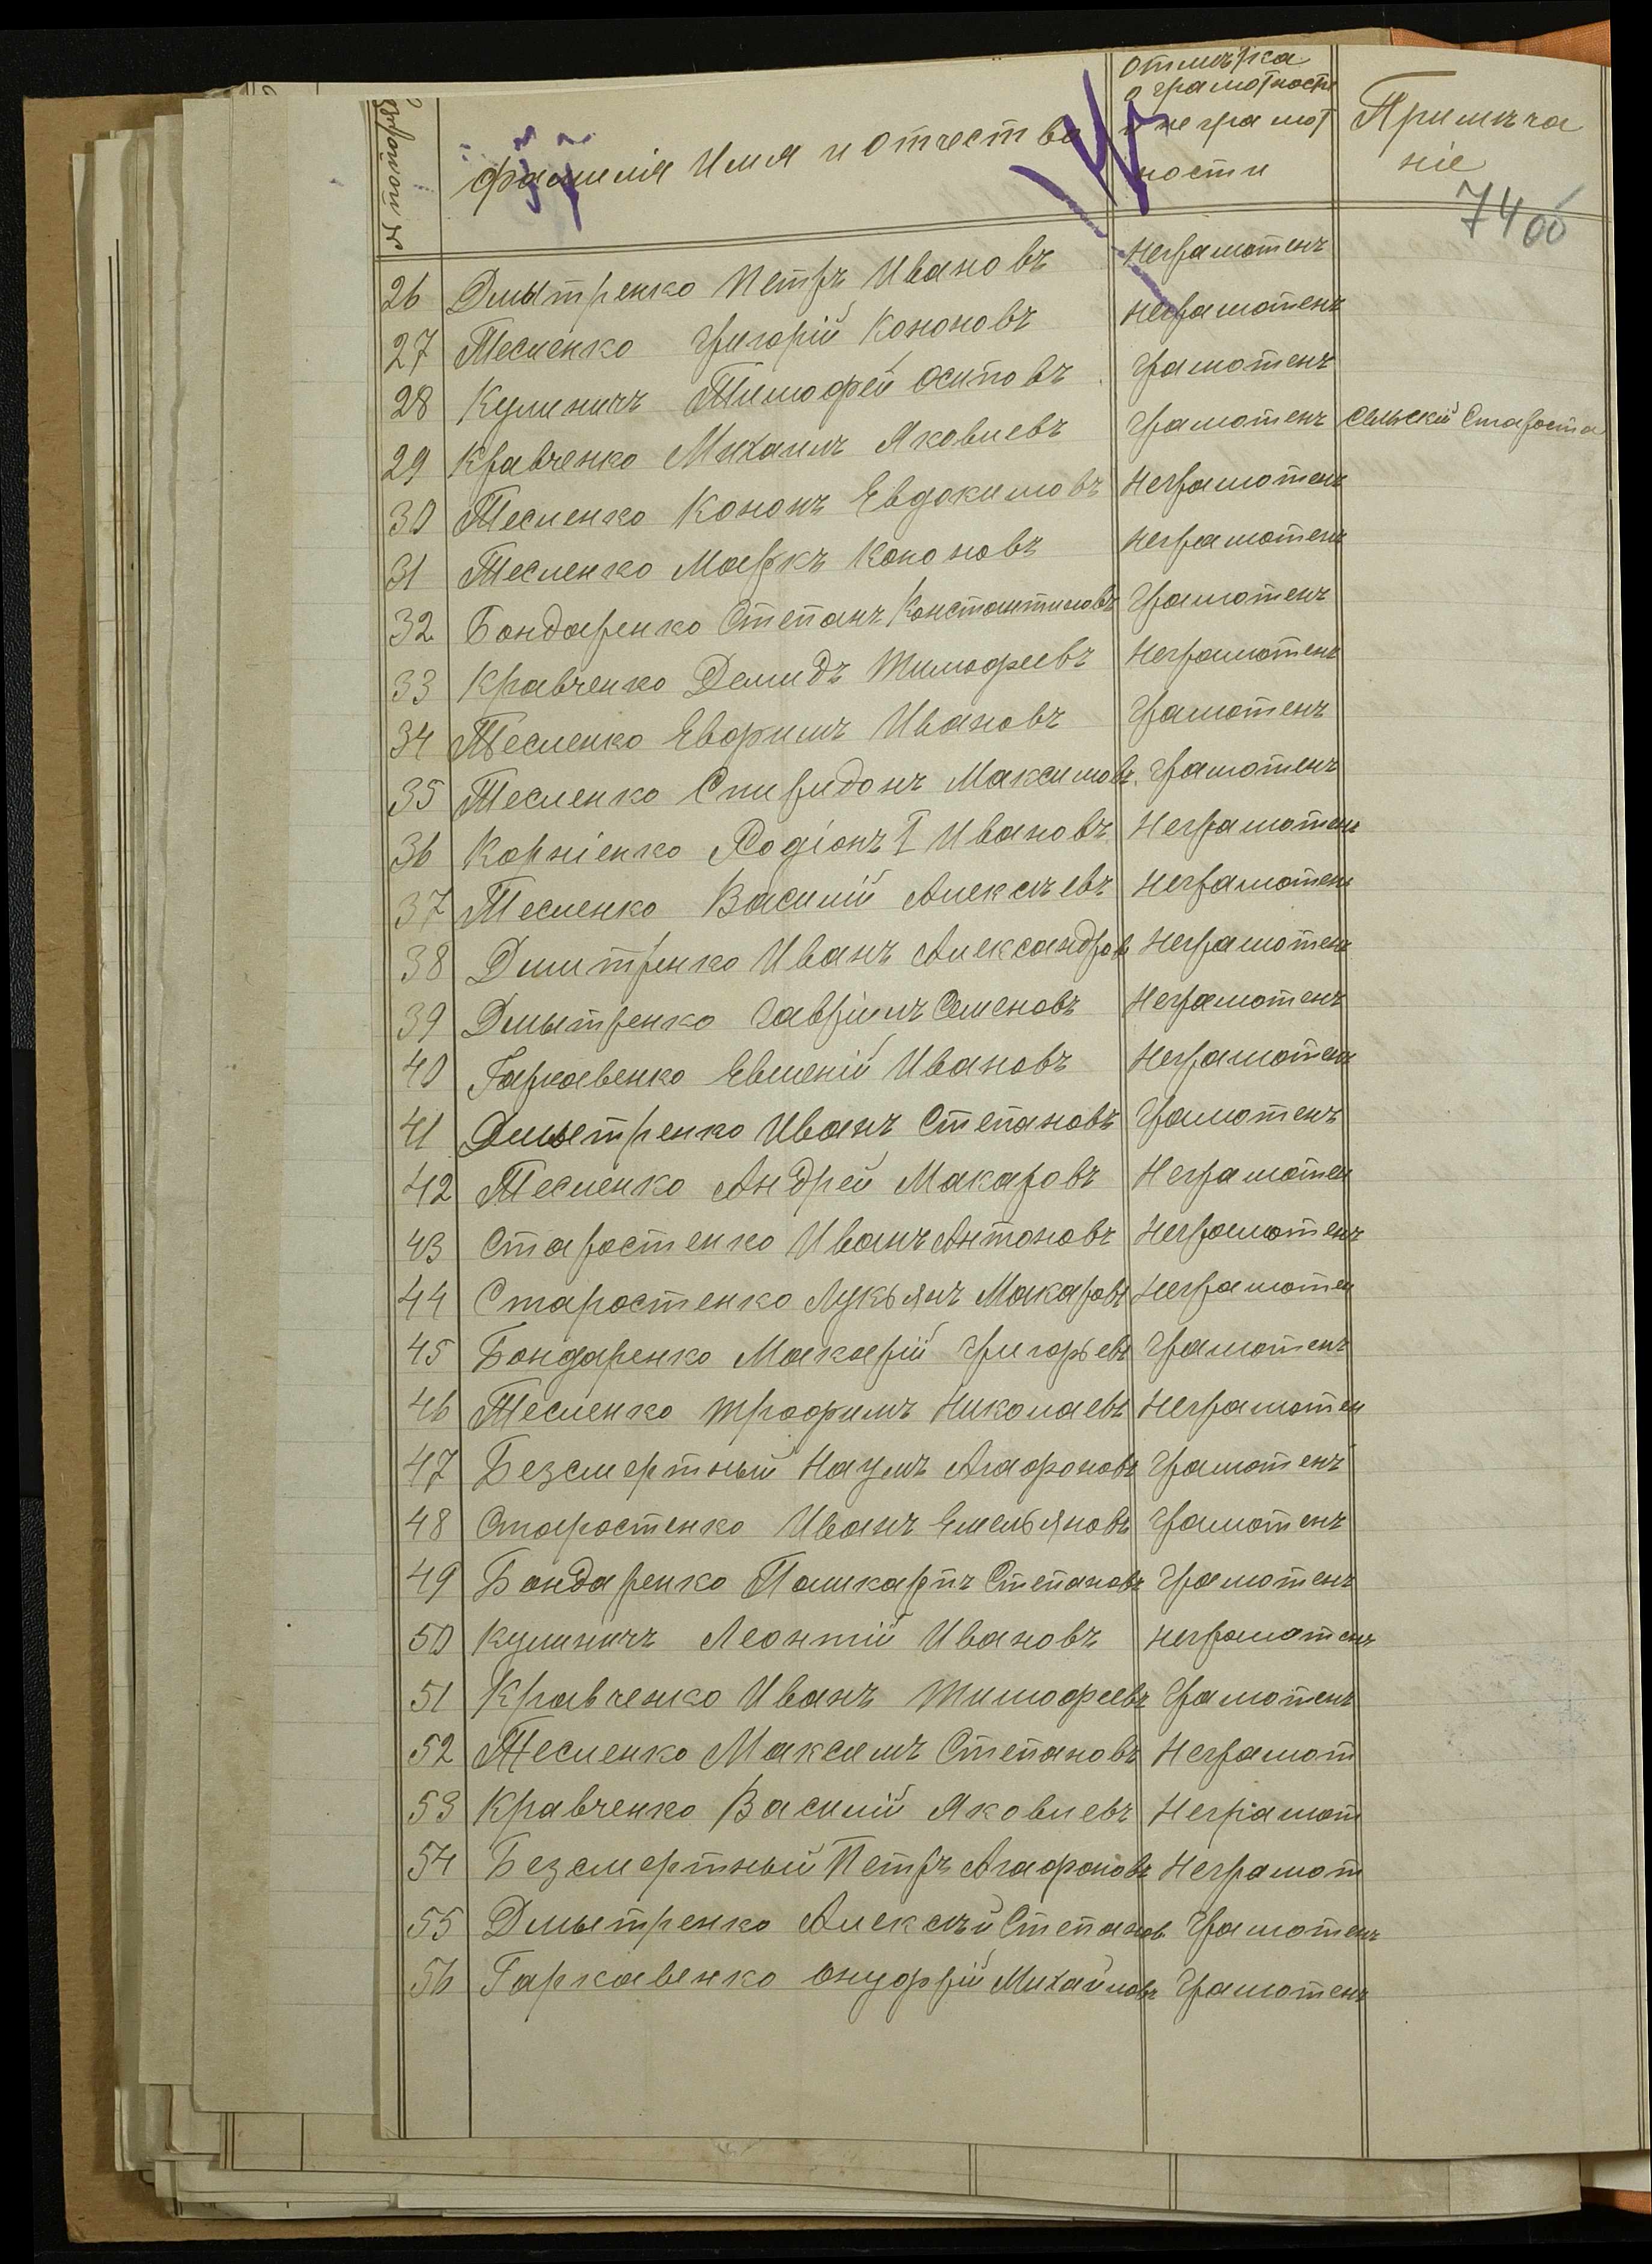 № по порядку
Фамилія Имя и отчество
отмѣтка
о грамотности
и неграмот
ности
Примѣча
ніе
7400
26 Дмытренко Петръ Ивановъ неграмотенъ
27 Тесленко Григорій Кононовъ неграмотенъ
28 Кулиничъ Тимофей Осиповъ Грамотенъ
29 Кравченко Михаилъ Яковлевъ Грамотенъ Сельскій Староста
30 Тесленко Кононъ Евдокимовъ Неграмотенъ
31 Тесленко Маркъ Кононовъ Неграмотенъ
32 Бондаренко Степанъ Константиновъ Грамотенъ
33 Кравченко Демидъ Тимофеевъ Неграмотенъ
34 Тесленко Евфримъ Ивановъ Грамотенъ
35 Тесленко Спиридонъ Максимовъ Грамотенъ
36 Корніенко Родіонъ I Ивановъ Неграмотенъ
37 Тесленко Василій Алексѣевъ Неграмотенъ
38 Дмитренко Иванъ Александровъ Неграмотенъ
39 Дмытренко Гавріилъ Семеновъ Неграмотенъ
40 Гаркавенко Евменій Ивановъ Неграмотенъ
41 Дмытренко Иванъ Степановъ Грамотенъ
42 Тесленко Андрей Макаровъ Неграмотен
43 Старостенко Иванъ Антоновъ Неграмотенъ
44 Старостенко Лукьянъ Макаровъ Неграмотен
45 Бондаренко Макарій Григорьевъ Грамотенъ
46 Тесленко Трофимъ Николаевъ Неграмотен
47 Безсмертный Наумъ Агафоновъ Грамотенъ
48 Старостенко Иванъ Емельяновъ Грамотенъ
49 Бондаренко Поликарпъ Степановъ Грамотенъ
50 Кулиничъ Леонтій Ивановъ Неграмотенъ
51 Кравченко Иванъ Тимофеевъ Грамотенъ
52 Тесленко Максимъ Степановъ Неграмот
53 Кравченко Василій Яковлевъ Неграмот
54 Безсмертный Петръ Агафоновъ Неграмот
55 Дмытренко Алексѣй Степанов Грамотенъ
56 Гаркавенко Онуфрій Михайловъ Грамотенъ